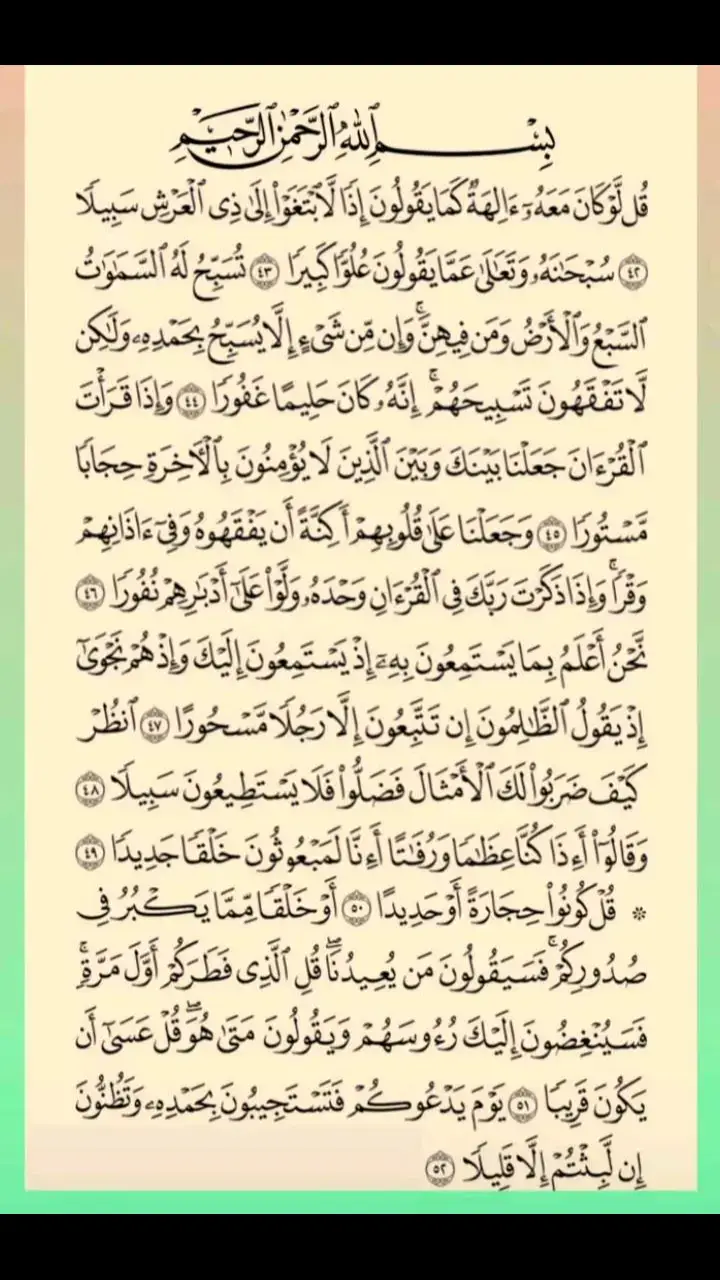 بِسْمِ ٱللَّهِ ٱلرَّحْمَٰنِ ٱلرَّحِيمِ
قُل لَّوْ كَانَ مَعَهُۥٓ ءَالِهَةٌ كَمَا يَقُولُونَ إِذًا لَّٱبْتَغَوْا۟ إِلَىٰ ذِى ٱلْعَرْشِ سَبِيلًا
٤٢ سُبْحَٰنَهُۥ وَتَعَٰلَىٰ عَمَّا يَقُولُونَ عُلُوًّا كَبِيرًا ٤٣ تُسَبِّحُ لَهُ ٱلسَّمَٰوَٰتُ
ٱلسَّبْعُ وَٱلْأَرْضُ وَمَن فِيهِنَّ ۚ وَإِن مِّن شَىْءٍ إِلَّا يُسَبِّحُ بِحَمْدِهِۦ وَلَٰكِن
لَّا تَفْقَهُونَ تَسْبِيحَهُمْ ۗ إِنَّهُۥ كَانَ حَلِيمًا غَفُورًا ٤٤ وَإِذَا قَرَأْتَ
ٱلْقُرْءَانَ جَعَلْنَا بَيْنَكَ وَبَيْنَ ٱلَّذِينَ لَا يُؤْمِنُونَ بِٱلْءَاخِرَةِ حِجَابًا
مَّسْتُورًا ٤٥ وَجَعَلْنَا عَلَىٰ قُلُوبِهِمْ أَكِنَّةً أَن يَفْقَهُوهُ وَفِىٓ ءَاذَانِهِمْ
وَقْرًا ۚ وَإِذَا ذَكَرْتَ رَبَّكَ فِى ٱلْقُرْءَانِ وَحْدَهُۥ وَلَّوْا۟ عَلَىٰٓ أَدْبَٰرِهِمْ نُفُورًا ٤٦
نَّحْنُ أَعْلَمُ بِمَا يَسْتَمِعُونَ بِهِۦٓ إِذْ يَسْتَمِعُونَ إِلَيْكَ وَإِذْ هُمْ نَجْوَىٰٓ
إِذْ يَقُولُ ٱلظَّٰلِمُونَ إِن تَتَّبِعُونَ إِلَّا رَجُلًا مَّسْحُورًا ٤٧ ٱنظُرْ
كَيْفَ ضَرَبُوا۟ لَكَ ٱلْأَمْثَالَ فَضَلُّوا۟ فَلَا يَسْتَطِيعُونَ سَبِيلًا ٤٨
وَقَالُوٓا۟ أَءِذَا كُنَّا عِظَٰمًا وَرُفَٰتًا أَءِنَّا لَمَبْعُوثُونَ خَلْقًا جَدِيدًا ٤٩
* قُلْ كُونُوا۟ حِجَارَةً أَوْ حَدِيدًا ٥٠ أَوْ خَلْقًا مِّمَّا يَكْبُرُ فِى
صُدُورِكُمْ ۚ فَسَيَقُولُونَ مَن يُعِيدُنَا ۖ قُلِ ٱلَّذِى فَطَرَكُمْ أَوَّلَ مَرَّةٍ ۚ
فَسَيُنْغِضُونَ إِلَيْكَ رُءُوسَهُمْ وَيَقُولُونَ مَتَىٰ هُوَ ۖ قُلْ عَسَىٰٓ أَن
يَكُونَ قَرِيبًا ٥١ يَوْمَ يَدْعُوكُمْ فَتَسْتَجِيبُونَ بِحَمْدِهِۦ وَتَظُنُّونَ
إِن لَّبِثْتُمْ إِلَّا قَلِيلًا ٥٢